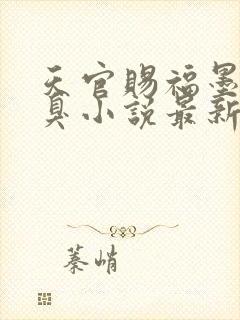 天官赐福墨
臭小说最新
蓁峭